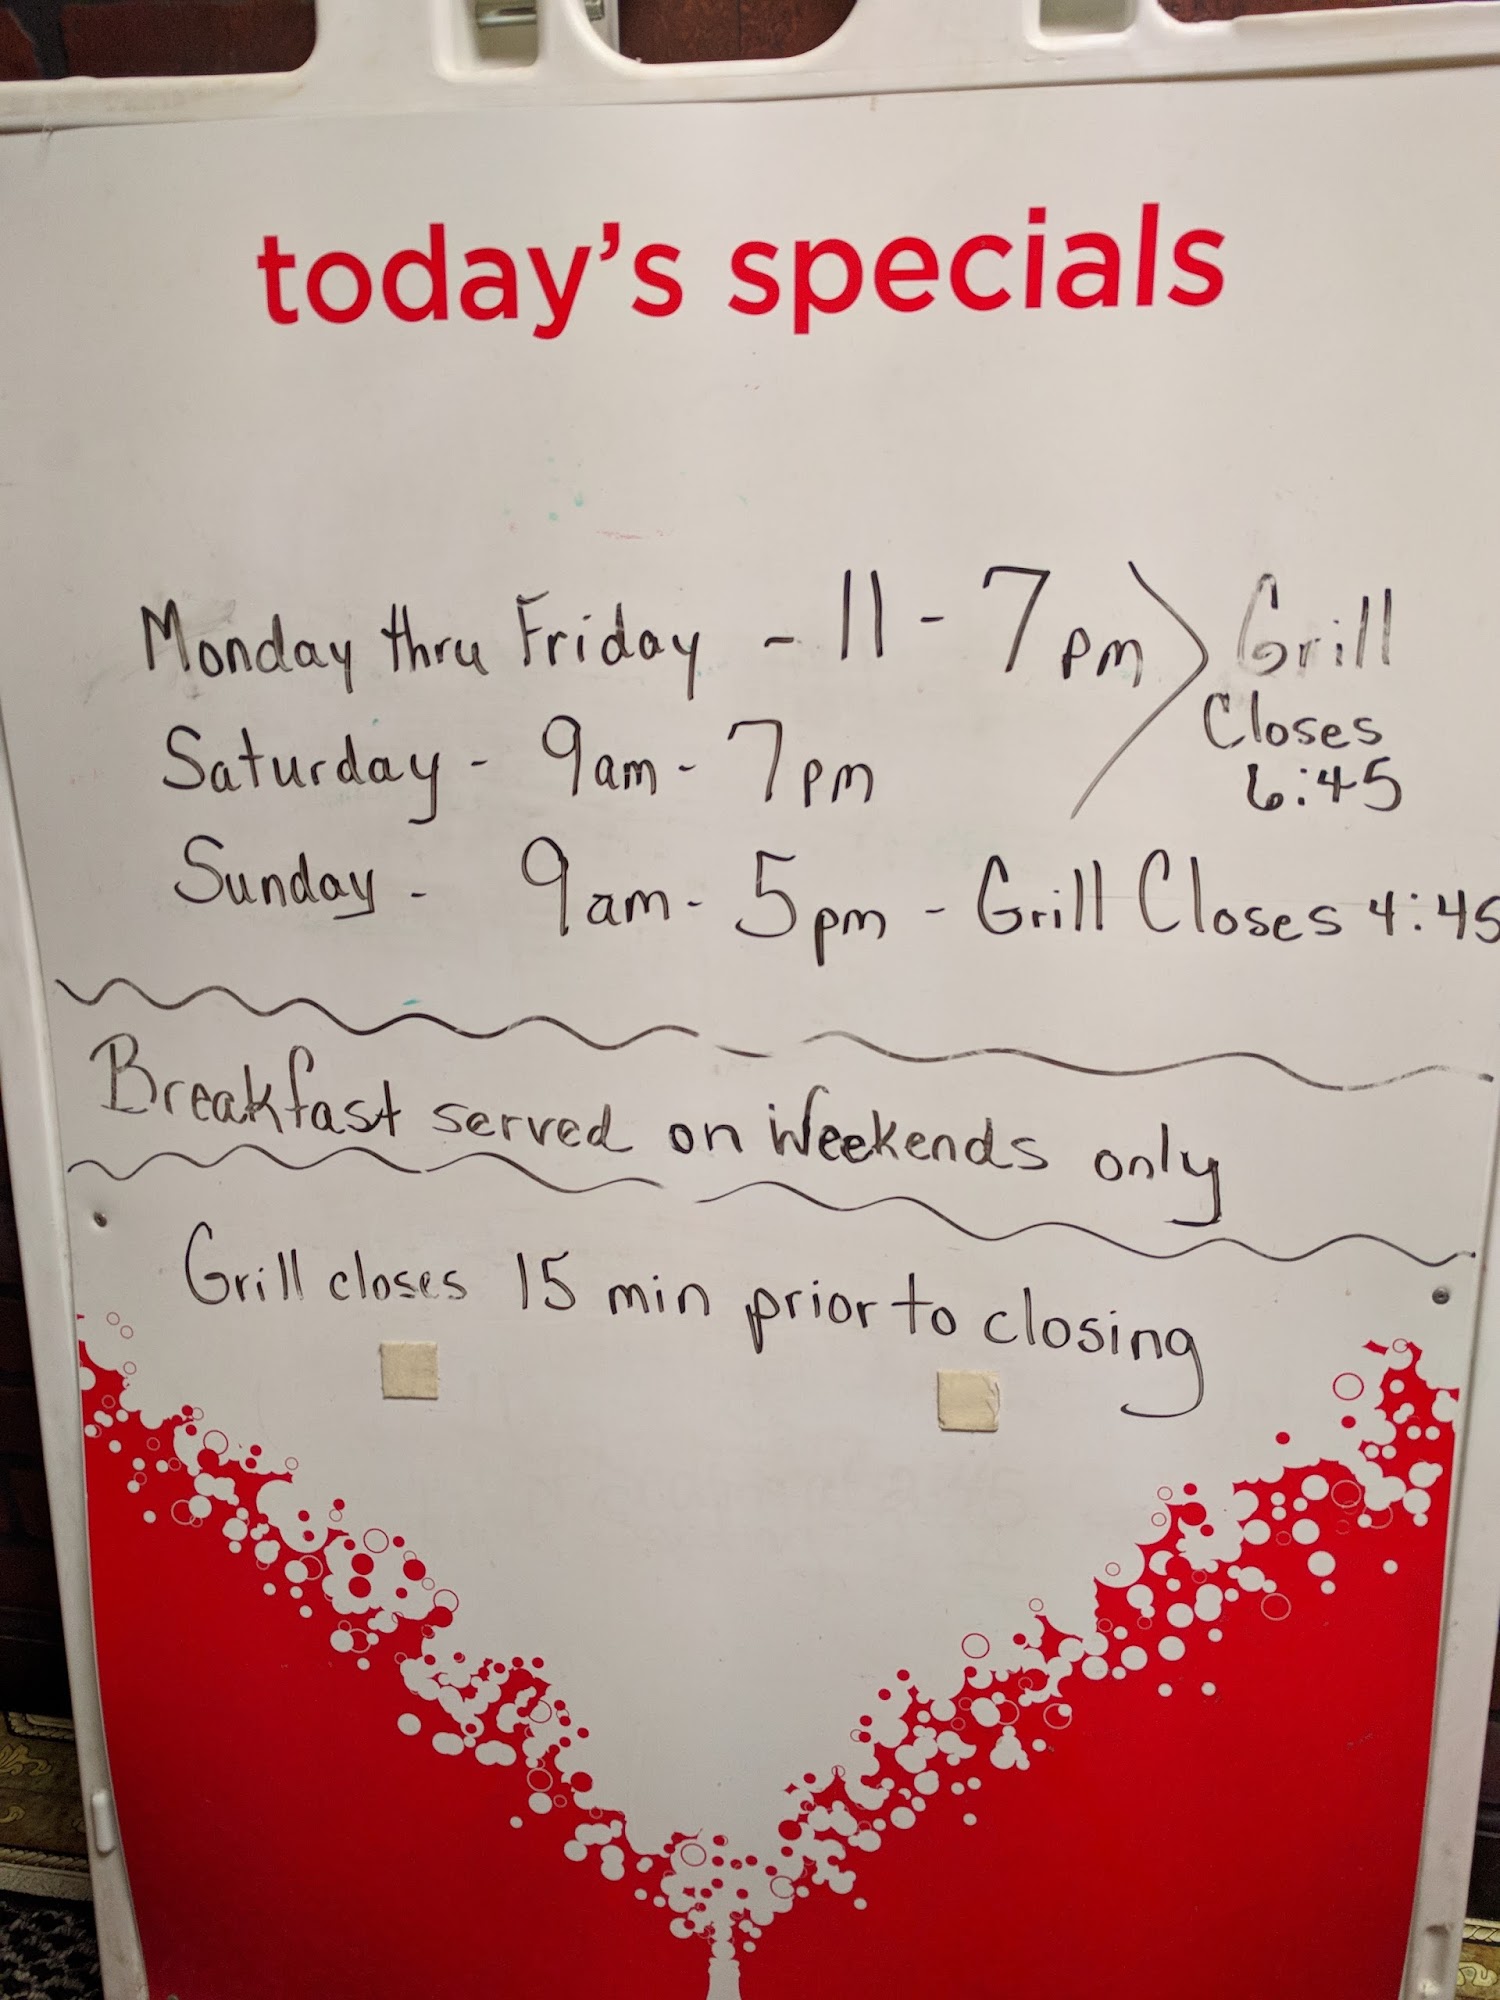 today's specials
Monday thru Friday - 11 - 7pm > Grill
Closes
6:45
Saturday - 9am - 7pm
Sunday - 9am - 5pm - Grill Closes 4:45
Breakfast served on Weekends only
Grill closes 15 min prior to closing